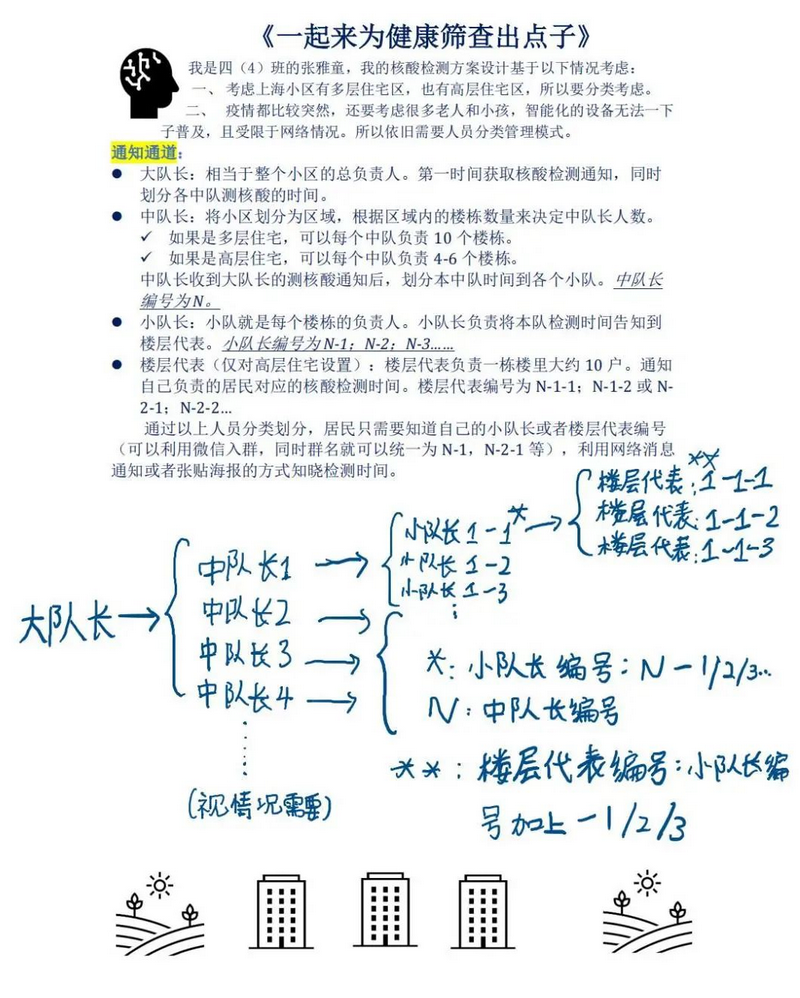 《一起来为健康筛查出点子》
我是四（4）班的张雅童，我的核酸检测方案设计基于以下情况考虑：
一、 考虑上海小区有多层住宅区，也有高层住宅区，所以要分类考虑。
二、 疫情都比较突然，还要考虑很多老人和小孩，智能化的设备无法一下
子普及，且受限于网络情况。所以依旧需要人员分类管理模式。
通知通道：
● 大队长：相当于整个小区的总负责人。第一时间获取核酸检测通知，同时
划分各中队测核酸的时间。
● 中队长：将小区划分为区域，根据区域内的楼栋数量来决定中队长人数。
✓ 如果是多层住宅，可以每个中队负责 10 个楼栋。
✓ 如果是高层住宅，可以每个中队负责 4-6 个楼栋。
中队长收到大队长的测核酸通知后，划分本中队时间到各个小队。中队长
编号为 N。
● 小队长：小队就是每个楼栋的负责人。小队长负责将本队检测时间告知到
楼层代表。小队长编号为 N-1；N-2；N-3……
● 楼层代表（仅对高层住宅设置）：楼层代表负责一栋楼里大约 10 户。通知
自己负责的居民对应的核酸检测时间。楼层代表编号为 N-1-1；N-1-2 或 N-
2-1；N-2-2…
通过以上人员分类划分，居民只需要知道自己的小队长或者楼层代表编号
（可以利用微信入群，同时群名就可以统一为 N-1，N-2-1 等），利用网络消息
通知或者张贴海报的方式知晓检测时间。
大队长→
中队长1 →
中队长2 →
中队长3 →
中队长4 →
⋮
(视情况需要)
小队长1-1* →
小队长1-2
小队长1-3
⋮
楼层代表**:1-1-1
楼层代表:1-1-2
楼层代表:1-1-3
*:小队长编号:N-1/2/3…
N:中队长编号
**:楼层代表编号:小队长编
号加上-1/2/3